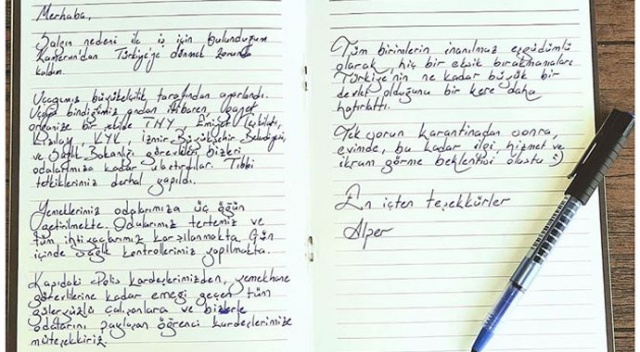 Merhaba,
Salgın nedeni ile iş için bulunduğum
Kamerun'dan Türkiye'ye dönmek zorunda
kaldım.
Uçağımız büyükelçilik tarafından ayarlandı.
Uçağa bindiğimiz andan itibaren, gayet
organize bir şekilde THY, Emniyet
Kızılay, KYK, İzmir Büyükşehir Belediyesi,
ve Sağlık Bakanlığı görevlileri bizleri
odalarımıza kadar ulaştırdılar. Tıbbi
tetkiklerimiz derhal yapıldı.
Yemeklerimiz odalarımıza üç öğün
getirilmekte. Odalarımız tertemiz ve
tüm ihtiyaçlarımız karşılanmakta. Gün
içinde sağlık kontrollerimiz yapılmakta.
Kapıdaki Polis kardeşlerimizden, yemekhane
görevlilerine kadar emeği geçen tüm
güleryüzlü çalışanlara ve bizlerle
odalarını paylaşan öğrenci kardeşlerimize
müteşekkiriz.
Tüm birimlerin inanılmaz eşgüdümlü
olarak, hiç bir eksik bırakmamaları
Türkiye'nin ne kadar büyük bir
devlet olduğunu bir kere daha
hatırlattı.
Tek sorun karantinadan sonra,
evimde, bu kadar ilgi, hizmet ve
ikram görme beklentisi oluştu :)
En içten teşekkürler
Alper